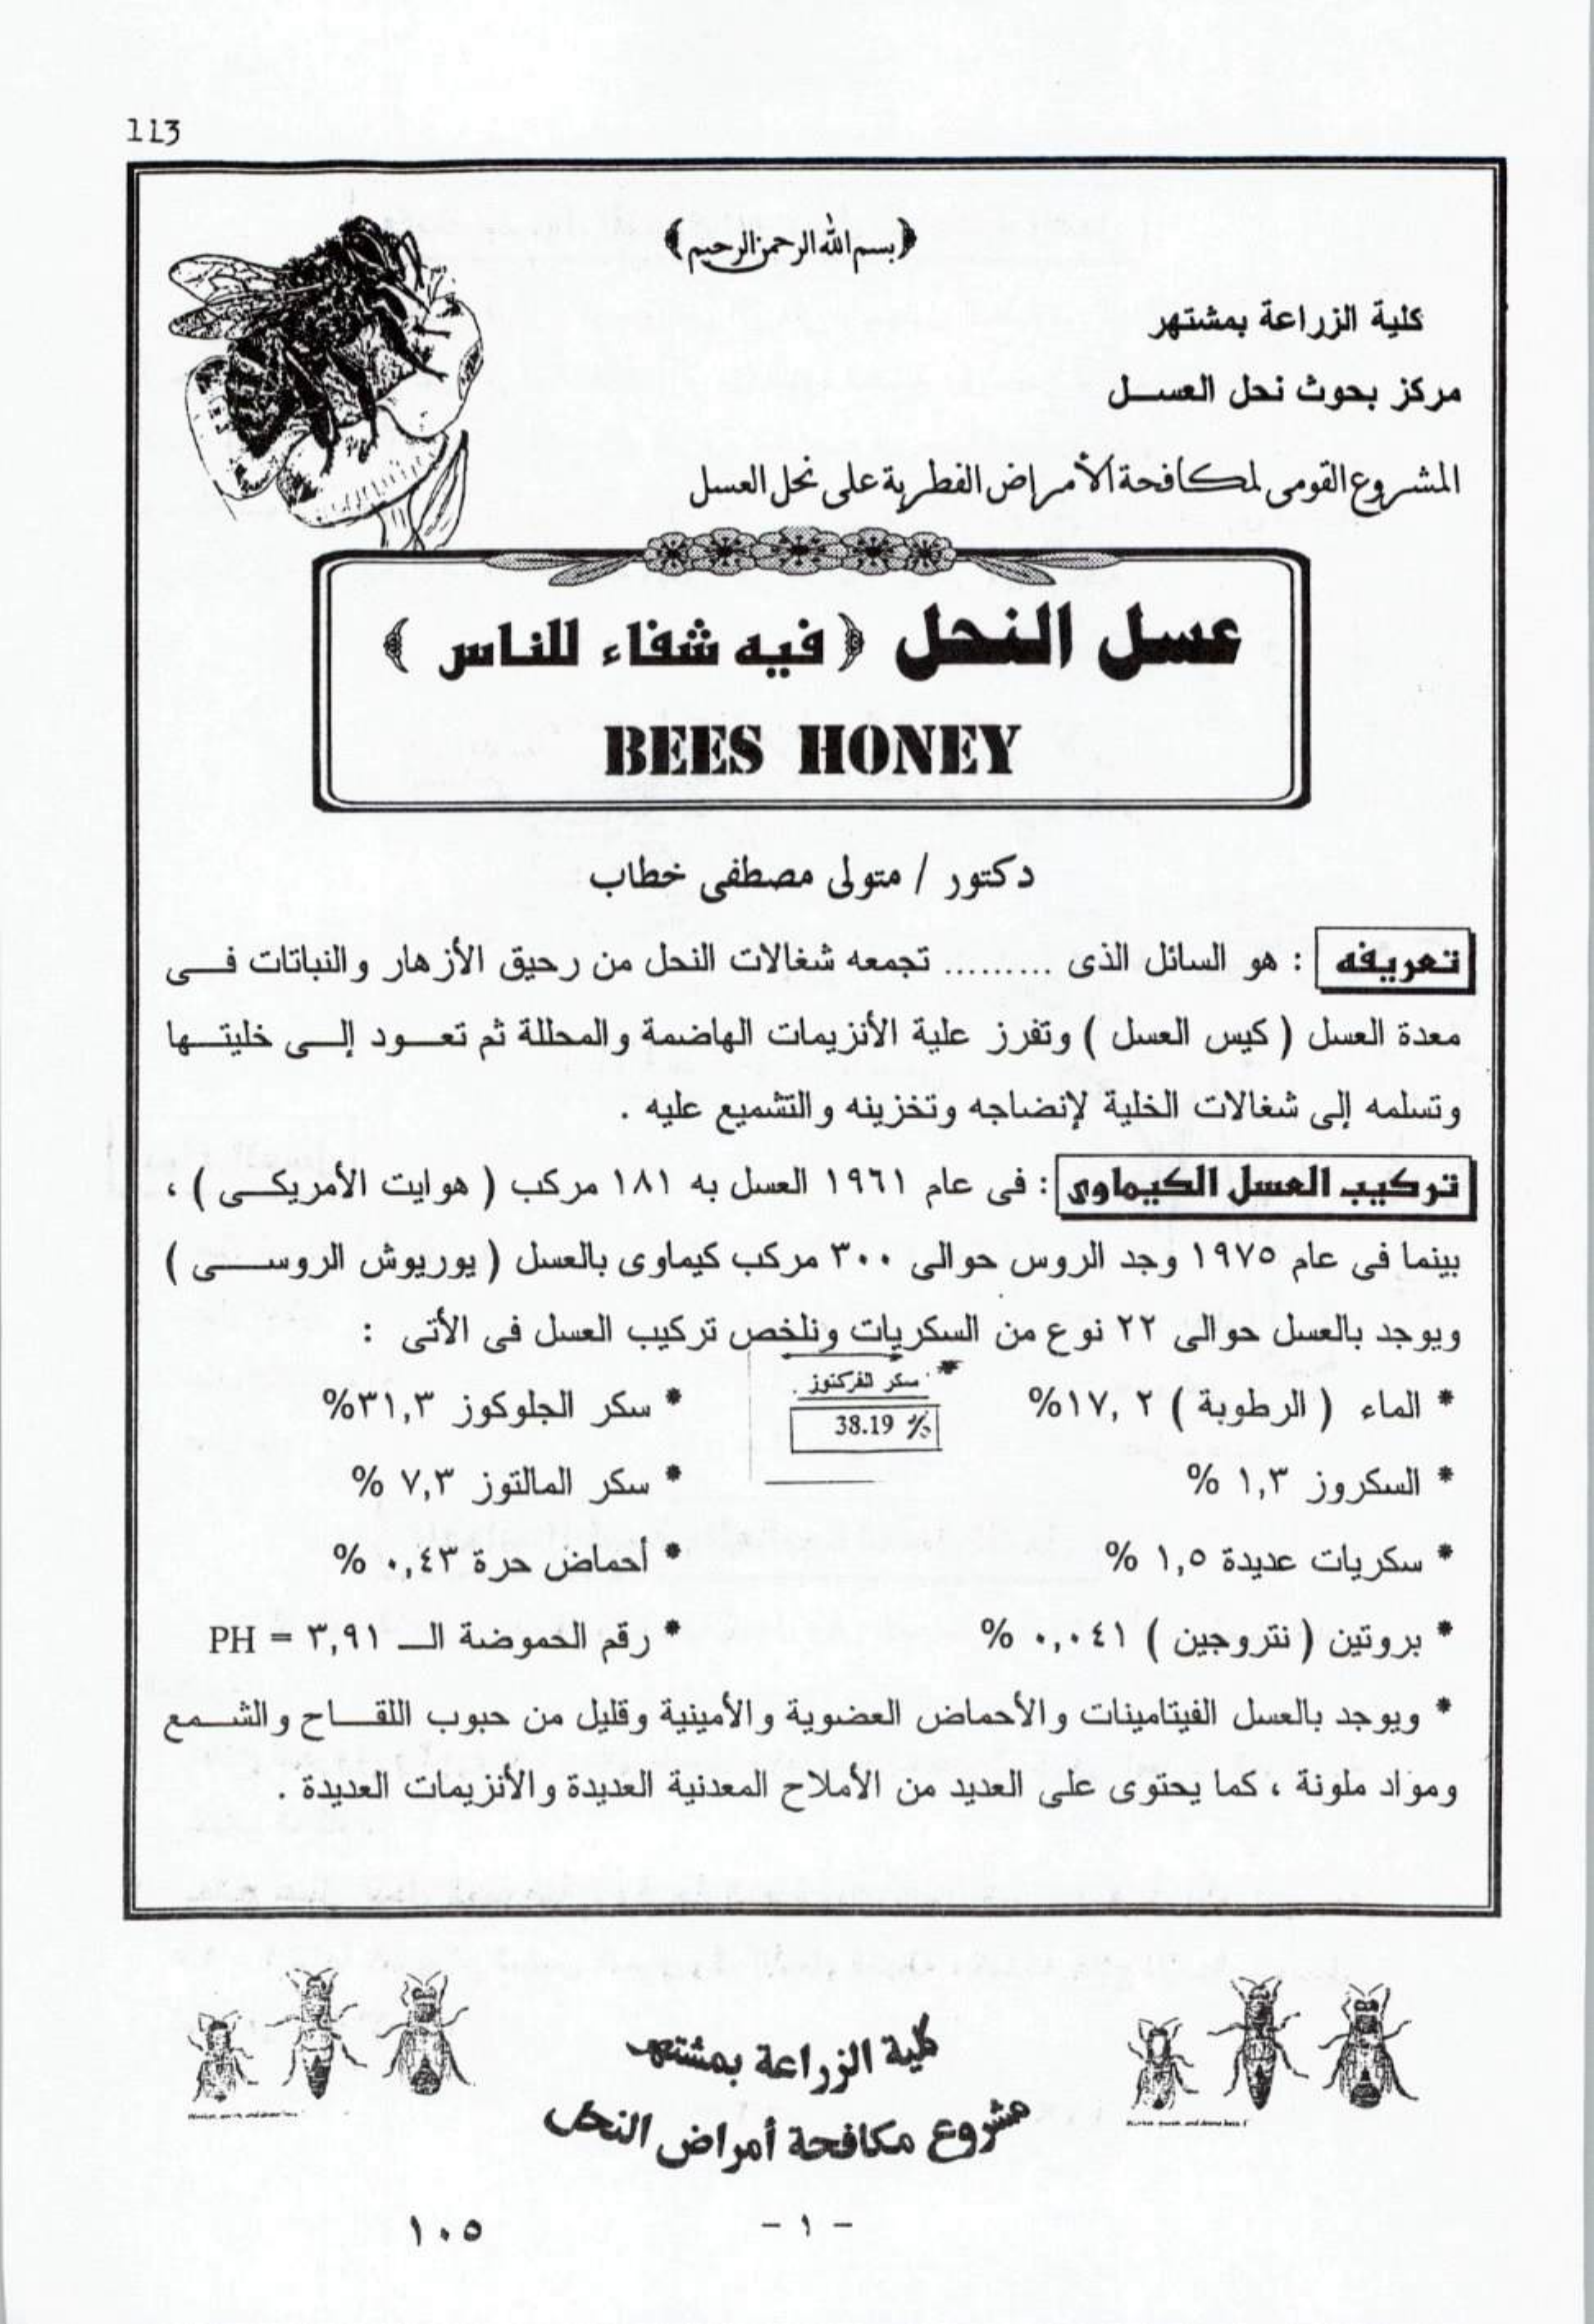 113
﴿بسم الله الرحمن الرحيم﴾
كلية الزراعة بمشتهر
مركز بحوث نحل العسل
المشروع القومى لمكافحة الأمراض الفطرية على نحل العسل
عسل النحل ﴿ فيه شفاء للناس ﴾
BEES HONEY
دكتور / متولى مصطفى خطاب
تعريفه : هو السائل الذى ......... تجمعه شغالات النحل من رحيق الأزهار والنباتات فى
معدة العسل ( كيس العسل ) وتفرز علية الأنزيمات الهاضمة والمحللة ثم تعود إلى خليتها
وتسلمه إلى شغالات الخلية لإنضاجه وتخزينه والتشميع عليه .
تركيب العسل الكيماوى : فى عام ١٩٦١ العسل به ١٨١ مركب ( هوايت الأمريكى ) ،
بينما فى عام ١٩٧٥ وجد الروس حوالى ٣٠٠ مركب كيماوى بالعسل ( يوريوش الروسى )
ويوجد بالعسل حوالى ٢٢ نوع من السكريات ونلخص تركيب العسل فى الأتى :
* الماء ( الرطوبة ) ١٧,٢% * سكر الفركتوز . * سكر الجلوكوز ٣١,٣%
38.19 %
* السكروز ١,٣ % * سكر المالتوز ٧,٣ %
* سكريات عديدة ١,٥ % * أحماض حرة ٠,٤٣ %
* بروتين ( نتروجين ) ٠,٠٤١ % * رقم الحموضة الـ PH = ٣,٩١
* ويوجد بالعسل الفيتامينات والأحماض العضوية والأمينية وقليل من حبوب اللقاح والشمع
ومواد ملونة ، كما يحتوى على العديد من الأملاح المعدنية العديدة والأنزيمات العديدة .
كلية الزراعة بمشتهر
مشروع مكافحة أمراض النحل
- ١ -
١٠٥